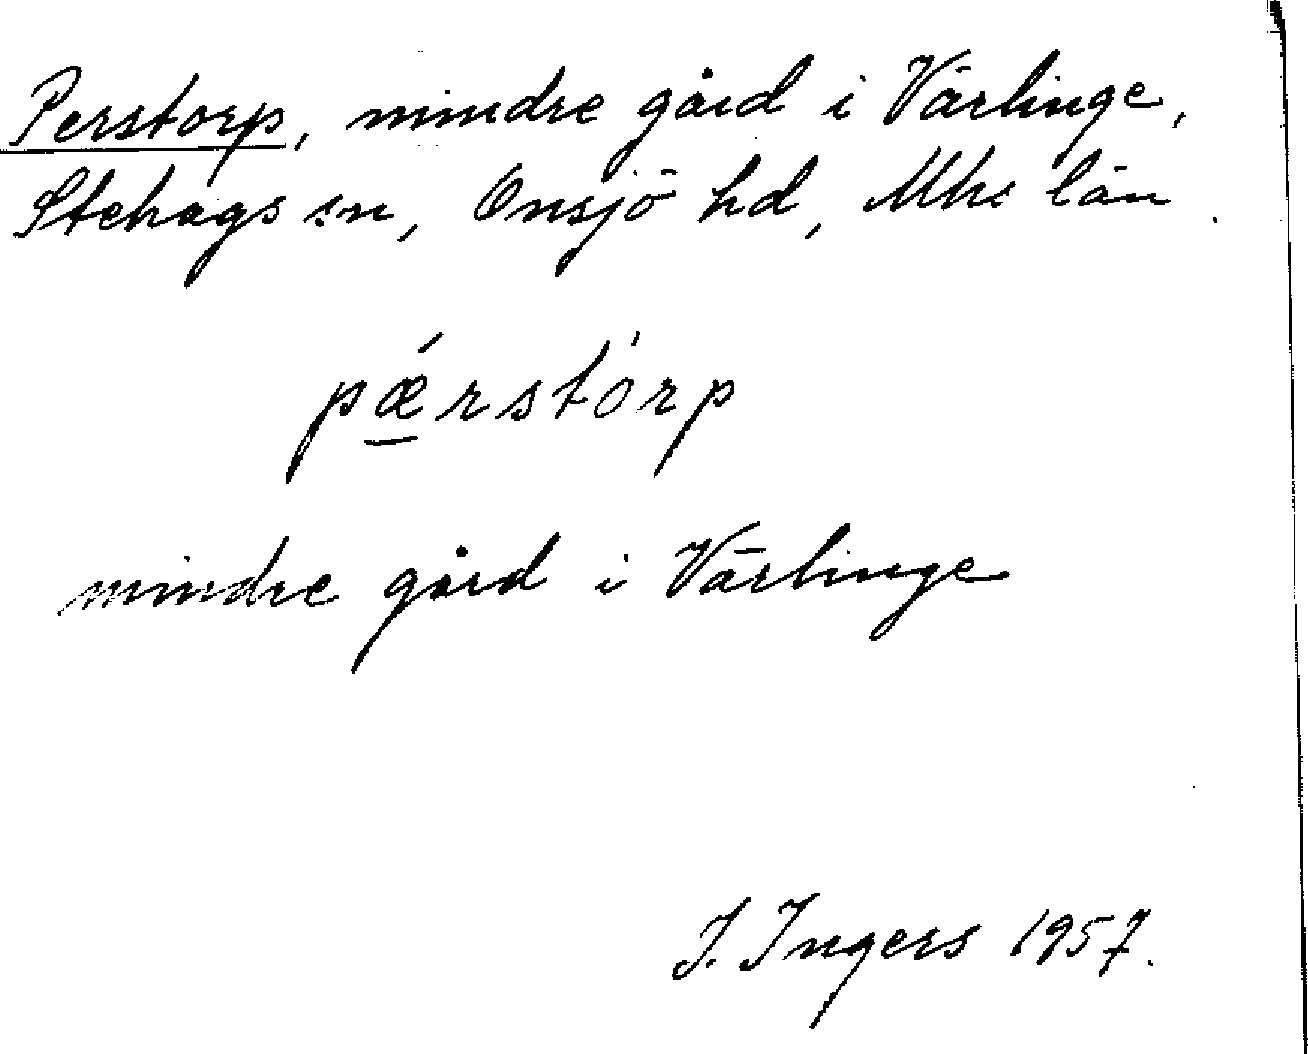 Perstorp, mindre gård i Värlinge,
Stehags sn, Onsjö hd, Mhs län.
pǽrstòrp
mindre gård i Värlinge
I. Ingers 1957.